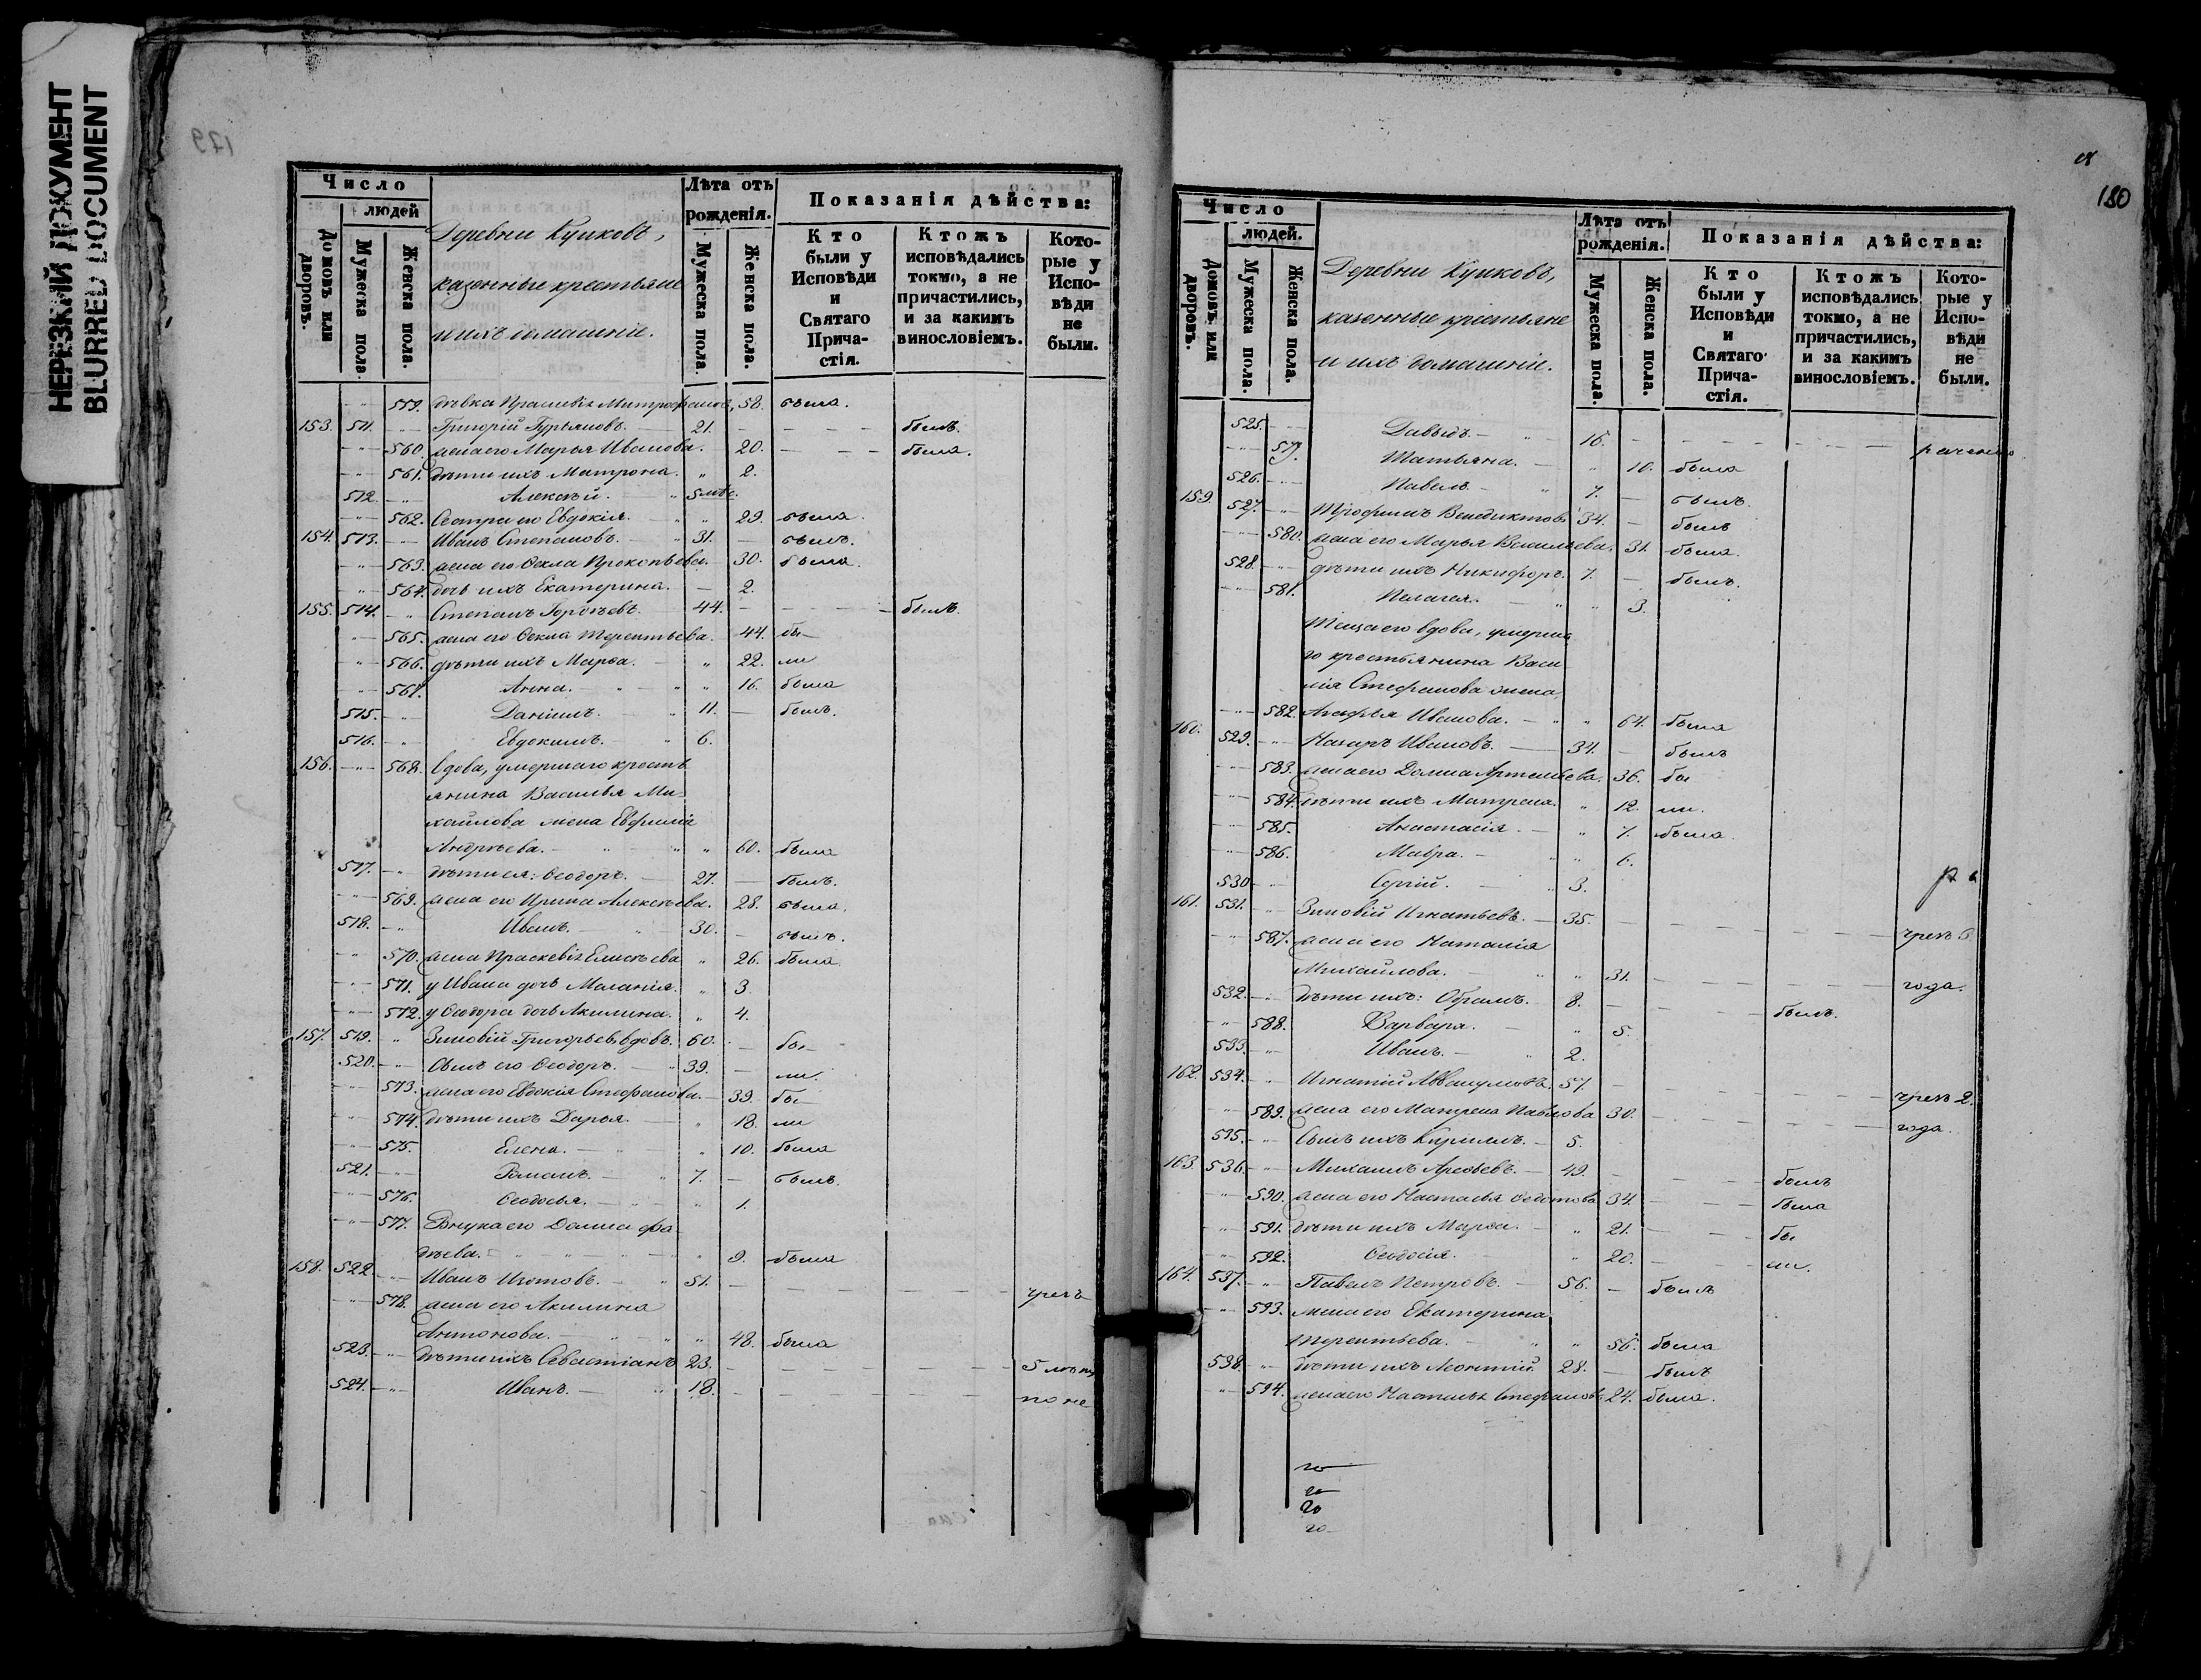 НЕРЕЗКИЙ ДОКУМЕНТ
BLURRED DOCUMENT
179
Число
людей
Домовъ или дворовъ.
Мужеска пола.
Женска пола.
Деревни Куиковъ,
казенные крестьяне
и ихъ домашніе.
Лѣта отъ рожденія.
Мужеска пола.
Женска пола.
Показанія дѣйства:
Кто были у Исповѣди и Святаго Причастія.
Ктожъ исповѣдались токмо, а не причастились, и за какимъ винословіемъ.
Которые у Исповѣди не были.
559. дѣвка Праскевія Митрофанова, 58. была.
153. 511. Григорій Гурьяновъ. 21. былъ.
560. жена его Марья Иванова. 20. была.
561. дѣти ихъ Матрона. 2.
512. Алексѣй. 5 мѣс.
562. Сестра его Евдокія. 29. была.
154. 513. Иванъ Степановъ. 31. былъ.
563. жена его Ѳекла Прокопьева. 30. была.
564. дочь ихъ Екатерина. 2.
155. 514. Степанъ Гордѣевъ. 44. былъ.
565. жена его Ѳекла Терентьева. 44. бы-
566. дѣти ихъ Марѳа. 22. ли
567. Анна. 16. была
515. Даніилъ. 11. былъ.
516. Евдокимъ. 6.
156. 568. вдова, умершаго кресть
янина Василья Ми-
хайлова жена Евфимія
Андреева. 60. была
517. дѣти ея: Ѳеодоръ. 27. былъ.
569. жена его Ирина Алексѣева. 28. была.
518. Иванъ. 30. былъ.
570. жена Праскевія Елисѣева 26. была.
571. у Ивана дочь Маланія. 3.
572. у Ѳеодора дочь Акилина. 4.
157. 519. Зиновій Григорьевъ, вдовъ. 60. бы-
520. Сынъ его Ѳеодоръ. 39. ли.
573. жена его Евдокія Стефанова. 39. бы-
574. дѣти ихъ Дарья. 18. ли
575. Елена. 10. была
521. Романъ. 7. былъ.
576. Ѳеодосья. 1.
577. Внука его Домна Фа-
дѣева. 9. была
158. 522. Иванъ Изотовъ. 51. чрезъ
578. жена его Акилина
Антонова. 48. была
523. дѣти ихъ Севастіанъ 23. 5 лѣтъ
524. Иванъ. 18. по не
180
Число
людей.
Домовъ или дворовъ.
Мужеска пола.
Женска пола.
Деревни Куиковъ,
казенные крестьяне
и ихъ домашніе.
Лѣта отъ рожденія.
Мужеска пола.
Женска пола.
Показанія дѣйства:
Кто были у Исповѣди и Святаго Причастія.
Ктожъ исповѣдались токмо, а не причастились, и за какимъ винословіемъ.
Которые у Исповѣди не были.
525. Давыдъ. 16.
579. Татьяна. 10. была
526. Павелъ. 7. былъ.
159. 527. Трофимъ Венедиктовъ 34. былъ
580. жена его Марья Васильева. 31. была.
528. дѣти ихъ Никифоръ. 7. былъ.
581. Пелагея. 3.
Теща его вдова, умерша
го крестьянина Васи
лія Стефанова жена
582. Агафья Иванова. 64. была
160. 529. Назаръ Ивановъ. 34. былъ
583. жена его Домна Артемьева. 36. бы
584. дѣти ихъ Матрена. 12. ли.
585. Анастасія. 7. была.
586. Мавра. 6.
530 Сергій. 3.
161. 531. Зиновій Игнатьевъ. 35. чрезъ
587. жена его Наталія
Михайлова. 31. года.
532. дѣти ихъ: Абрамъ. 8. былъ.
588. Варвара. 5.
533. Иванъ. 2.
162. 534. Игнатій Аввакумовъ 57. чрезъ 2.
589. жена его Матрена Павлова 30. года.
535. Сынъ ихъ Кириллъ. 5.
163. 536. Михаилъ Арефьевъ. 49. былъ
590. жена его Настасья Ѳедотова 34. была
591. дѣти ихъ Марѳа. 21. бы
592. Ѳеодосія. 20. ли.
164. 537. Павелъ Петровъ. 56. былъ
593. жена его Екатерина
Терентьева. 56. была
538. дѣти ихъ Леонтій 28. былъ
594. жена его Настасья Стефанова 24. была.